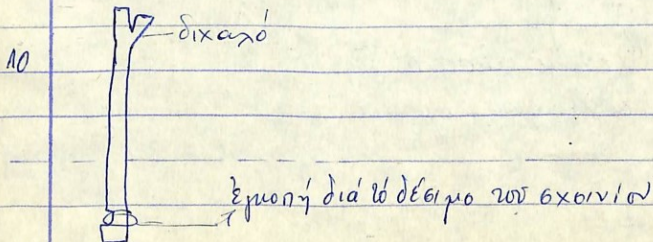 διχαλό
10
ἐγκοπή διά τό δέσιμο τοῦ σχοινίοῦ